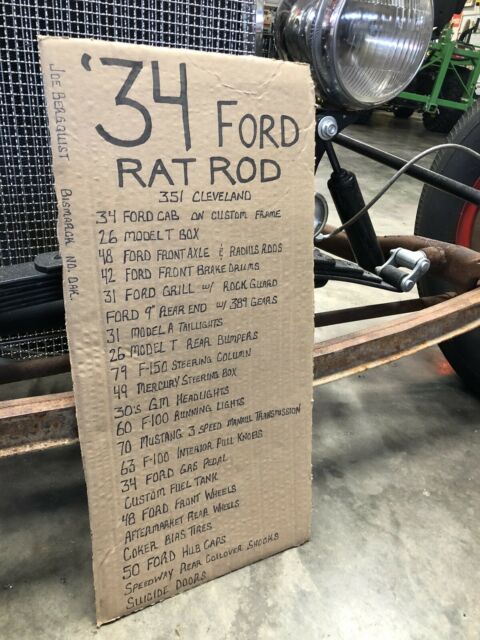 '34 FORD
RAT ROD
351 CLEVELAND
34 FORD CAB ON CUSTOM FRAME
26 MODEL T BOX
48 FORD FRONT AXLE & RADIUS RODS
42 FORD FRONT BRAKE DRUMS
31 FORD GRILL W/ ROCK GUARD
FORD 9" REAR END W/ 389 GEARS
31 MODEL A TAILLIGHTS
26 MODEL T REAR BUMPERS
79 F-150 STEERING COLUMN
49 MERCURY STEERING BOX
30'S GM HEADLIGHTS
60 F100 RUNNING LIGHTS
70 MUSTANG 3 SPEED MANUAL TRANSMISSION
63 F-100 INTERIOR PULL KNOBS
34 FORD GAS PEDAL
CUSTOM FUEL TANK
48 FORD FRONT WHEELS
AFTERMARKET REAR WHEELS
COKER BIAS TIRES
50 FORD HUB CAPS
SPEEDWAY REAR COILOVER SHOCKS
SUICIDE DOORS
JOE BERGQUIST BISMARCK NO. DAK.